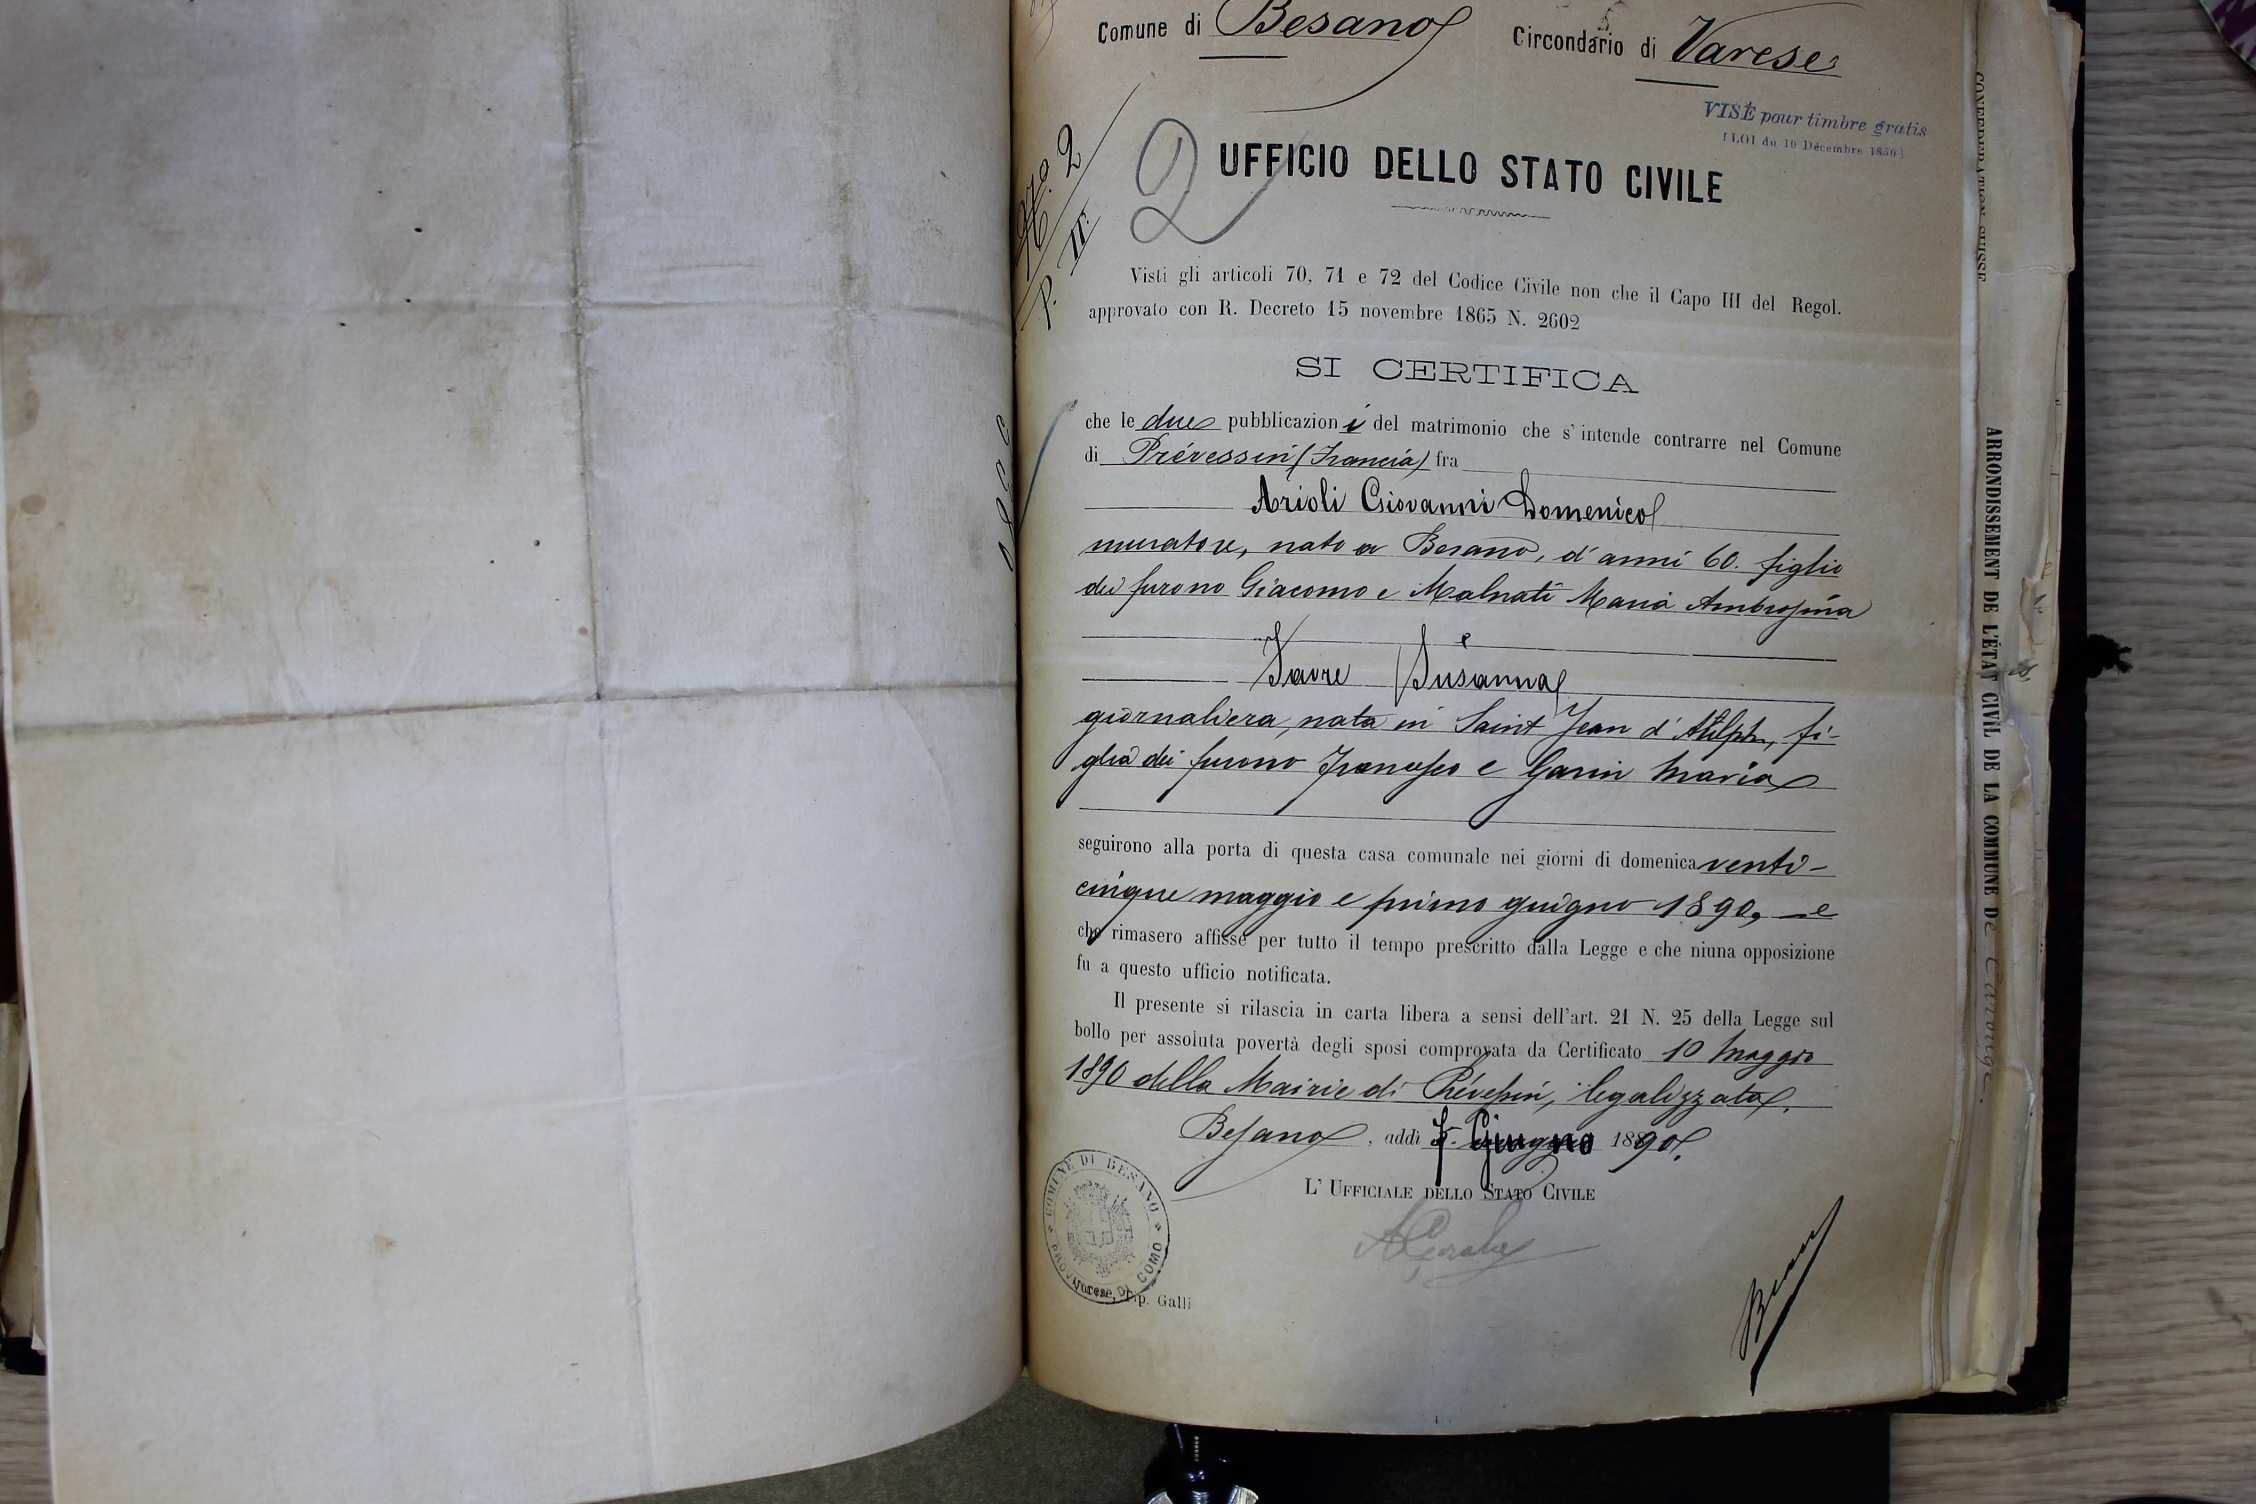 Comune di Besano Circondario di Varese
VISÉ pour timbre gratis
LOI du 10 Décembre 1850
N.° 2
P. II.
2
UFFICIO DELLO STATO CIVILE
Visti gli articoli 70, 71 e 72 del Codice Civile non che il Capo III del Regol.
approvato con R. Decreto 15 novembre 1865 N. 2602
SI CERTIFICA
che le due pubblicazion i del matrimonio che s' intende contrarre nel Comune
di Prévessin (Francia) fra
Arioli Giovanni Domenico
muratore, nato a Besano, d'anni 60. figlio
dei furono Giacomo e Malnati Maria Ambrogina
e
Favre Susanna
giornaliera, nata in Saint Jean d' fi-
glia dei furono Francesco e Garin Maria
seguirono alla porta di questa casa comunale nei giorni di domenica venti-
cinque maggio e primo giugno 1890, e
che rimasero affisse per tutto il tempo prescritto dalla Legge e che niuna opposizione
fu a questo ufficio notificata.
Il presente si rilascia in carta libera a sensi dell'art. 21 N. 25 della Legge sul
bollo per assoluta povertà degli sposi comprovata da Certificato 10 Maggio
1890 della Mairie di Prévessin, legalizzata.
Besano, addì Giugno 1890.
L' UFFICIALE DELLO STATO CIVILE
COMUNE DI BESANO
PROV. DI COMO
Varese, Tip. Galli
CONFÉDÉRATION SUISSE
ARRONDISSEMENT DE L'ÉTAT CIVIL DE LA COMMUNE De Carouge.